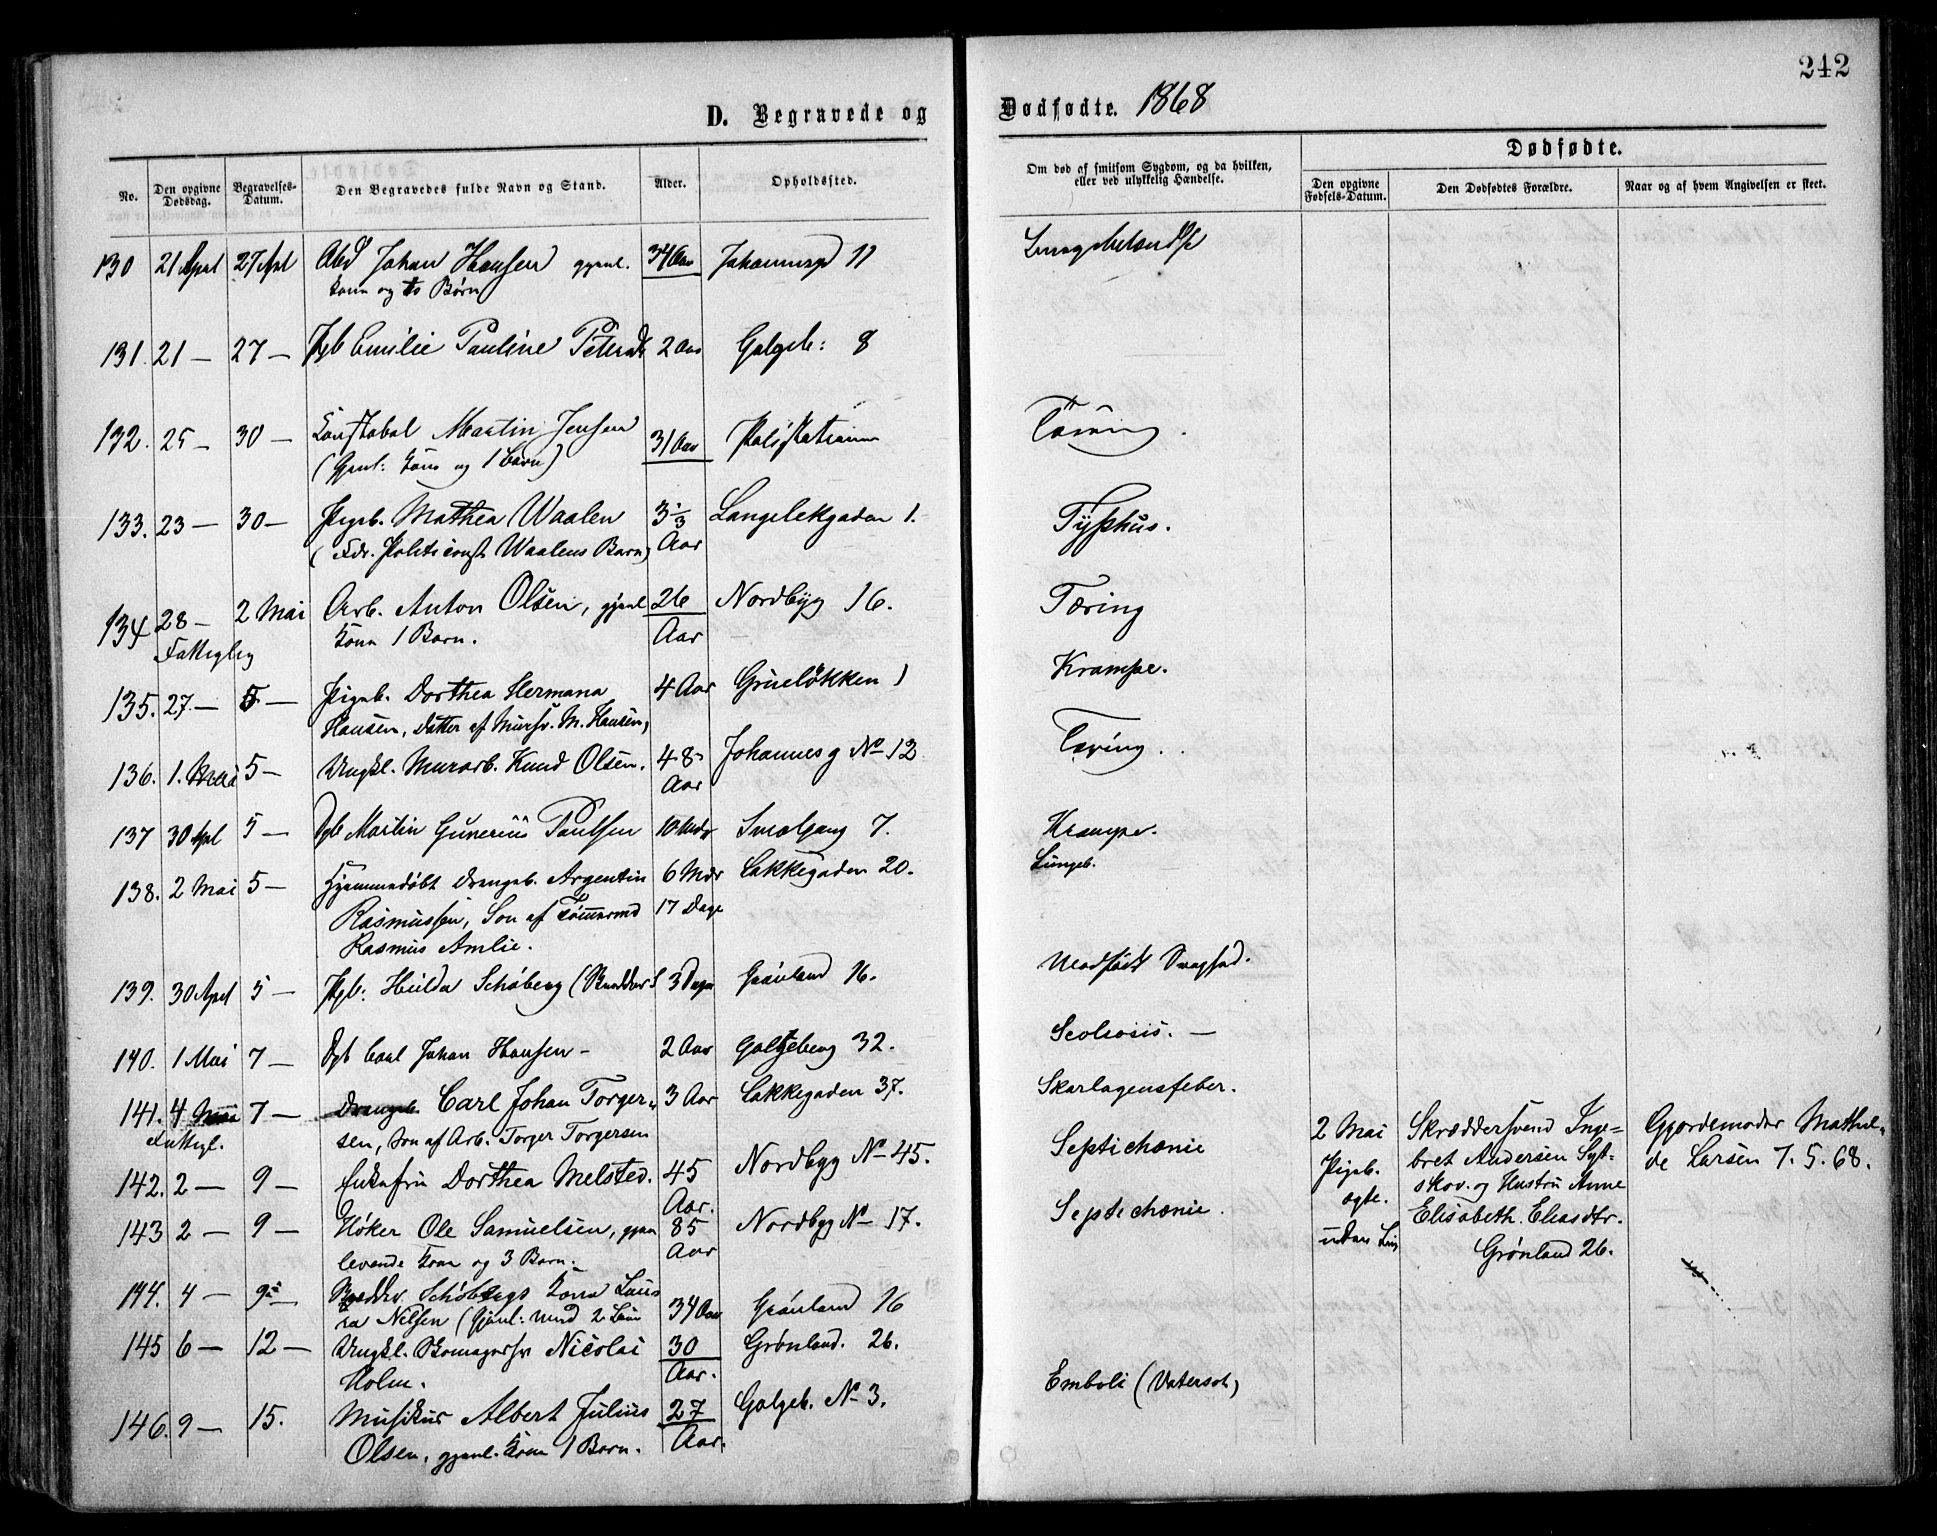 242
D. Begravede og Dødfødte. 1868
No.
Den opgivne Dødsdag.
Begravelses-Datum.
Den Begravedes fulde Navn og Stand.
Alder.
Opholdssted.
Om død af smitsom Sygdom, og da hvilken, eller ved ulykkelig Hændelse.
Dødfødte.
Den opgivne Fødsels-Datum.
Den Dødfødtes Forældre.
Naar og af hvem Angivelsen er skeet.
130 21 April 27 Apl Johan Hansen gjenl. 34 Aar 11
Kone og to Børn
131. 21 — 27 — Pgb Emilie Pauline 2 Aar Galgeb: 8
132. 25 — 30 — Konstabel Martin Jensen 31 Aar Tæring.
(Gjenl: Kone og 1 Barn)
133. 23 — 30 — Pigeb. Mathea Waalen 3 1/3 Aar Langelekgaden 1. Typhus.
(Fdr. Politiconst. Waalens Barn)
134 28 — 2 Mai Arb. Anton Olsen, gjenl 26 Aar Nordbyg 16. Tæring
Fattigbg Kone 1 Barn.
135. 27 — 5 — Pigeb. Dorthea Hermana 4 Aar Grüeløkken 1 Krampe.
Hansen, Datter af Mursv. M. Hansen,
136. 1. Mai 5 — Ungkl. Murarb. Knud Olsen. 48 Aar Johannesg No 12 Tæring.
137 30 Apl 5 — Dgb Martin Gunerius Paulsen 10 Mdr Smalgang 7. Krampe.
138. 2 Mai 5 — Hjemmedøbt Drengeb. Argentin 6 Mdr 17 Dage Lakkegaden 20. Lungeb.
Rasmussen, Søn af Tømmermd
Rasmus Amlie.
139. 30 April 5 — Pgb: Hilda Schøberg 3 Dage Grønland 16. Medfødt Svaghed.
140. 1 Mai 7 — Dgb Carl Johan Hansen — 2 Aar Galgeberg 32. Scoliosis. —
141. 4 Mai 7 — Drengeb. Carl Johan Torger- 3 Aar Lakkegaden 37. Skarlagensfeber.
Fattigl. sen, Søn af Arb. Torger Torgersen
142. 2 — 9 — Enkefru Dorthea Melsted. 45 Aar. Nordbyg No 45. Septichæmie
143 2 — 9 — Høker Ole Samuelsen, gjen 85 Aar Nordbyg No 17. Septichæmie.
levende Kone og 3 Børn.
144. 4 — 9 — Schøbergs Kone Lau
ra Nelsen (Gjenl: Mand 2 34 Aar Grønland 16
145 6 — 12 — Ungkl. Nicolai 30 Aar. Grønland. 26.
Holm.
146. 9 — 15. Musikus Albert Julius 27 Aar. Galgeb. No 3. Emboli
Olsen, gjenl. Kone 1 Barn.
2 Mai
Pigeb.
ægte.
uden
Skræddersvend Inge-
bret Andersen Syt-
skov. og Hustru Anne
Elisabeth Eliasdtr.
Grønland 26.
Gjordemoder Mathil-
de Larsen 7. 5. 68.